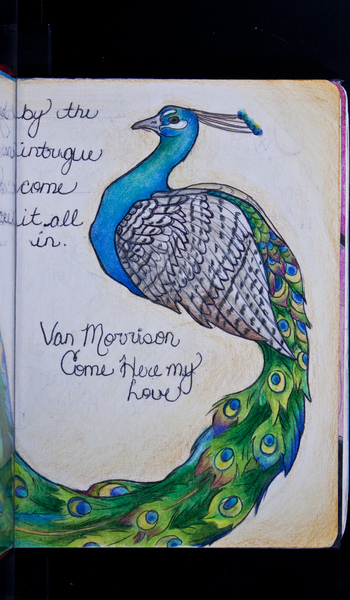 by the
intrigue
come
it all
in.
Van Morrison
Come Here my
Love